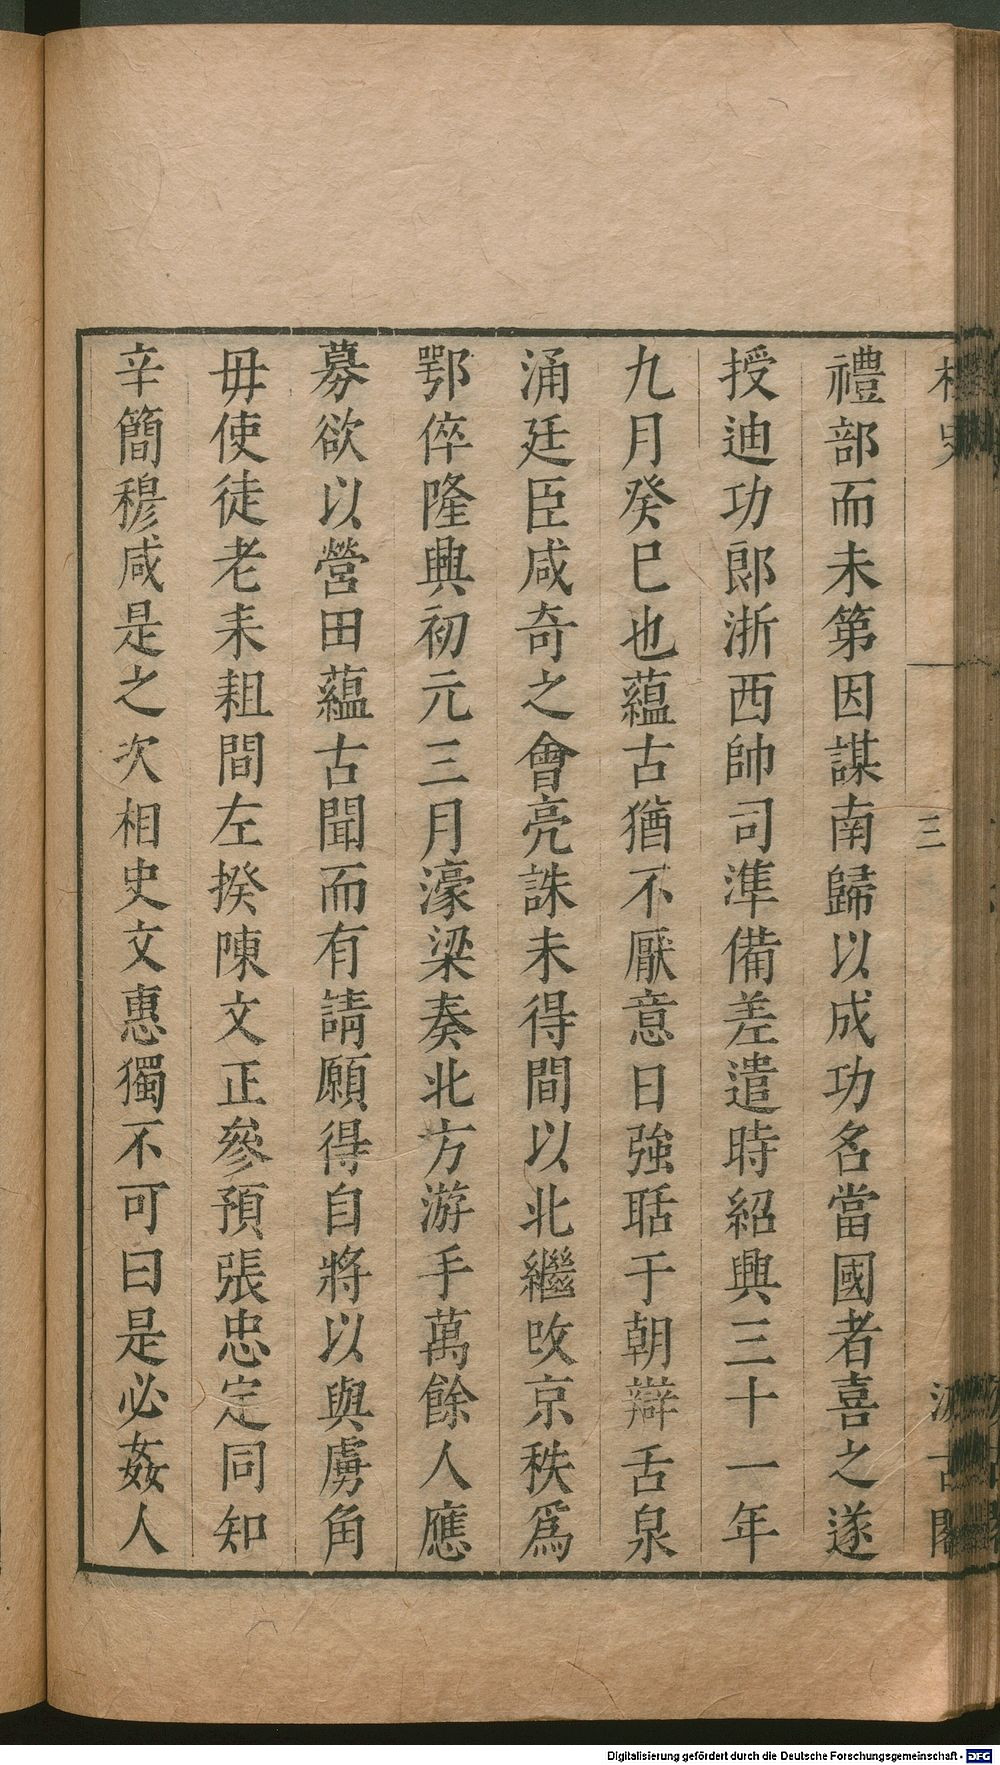 史
三
古閣
禮部而未第因謀南歸以成功名當國者喜之遂
授迪功郎浙西帥司準備差遣時紹興三十一年
九月癸巳也蘊古猶不厭意日強聒于朝辯舌泉
涌廷臣咸奇之會亮誅未得間以北繼改京秩爲
鄂倅隆興初元三月濠梁奏北方游手萬餘人應
募欲以營田蘊古聞而有請願得自將以與虜角
毋使徒老耒耝間左揆陳文正參預張忠定同知
辛簡穆咸是之次相史文惠獨不可曰是必姦人
Digitalisierung gefördert durch die Deutsche Forschungsgemeinschaft - DFG